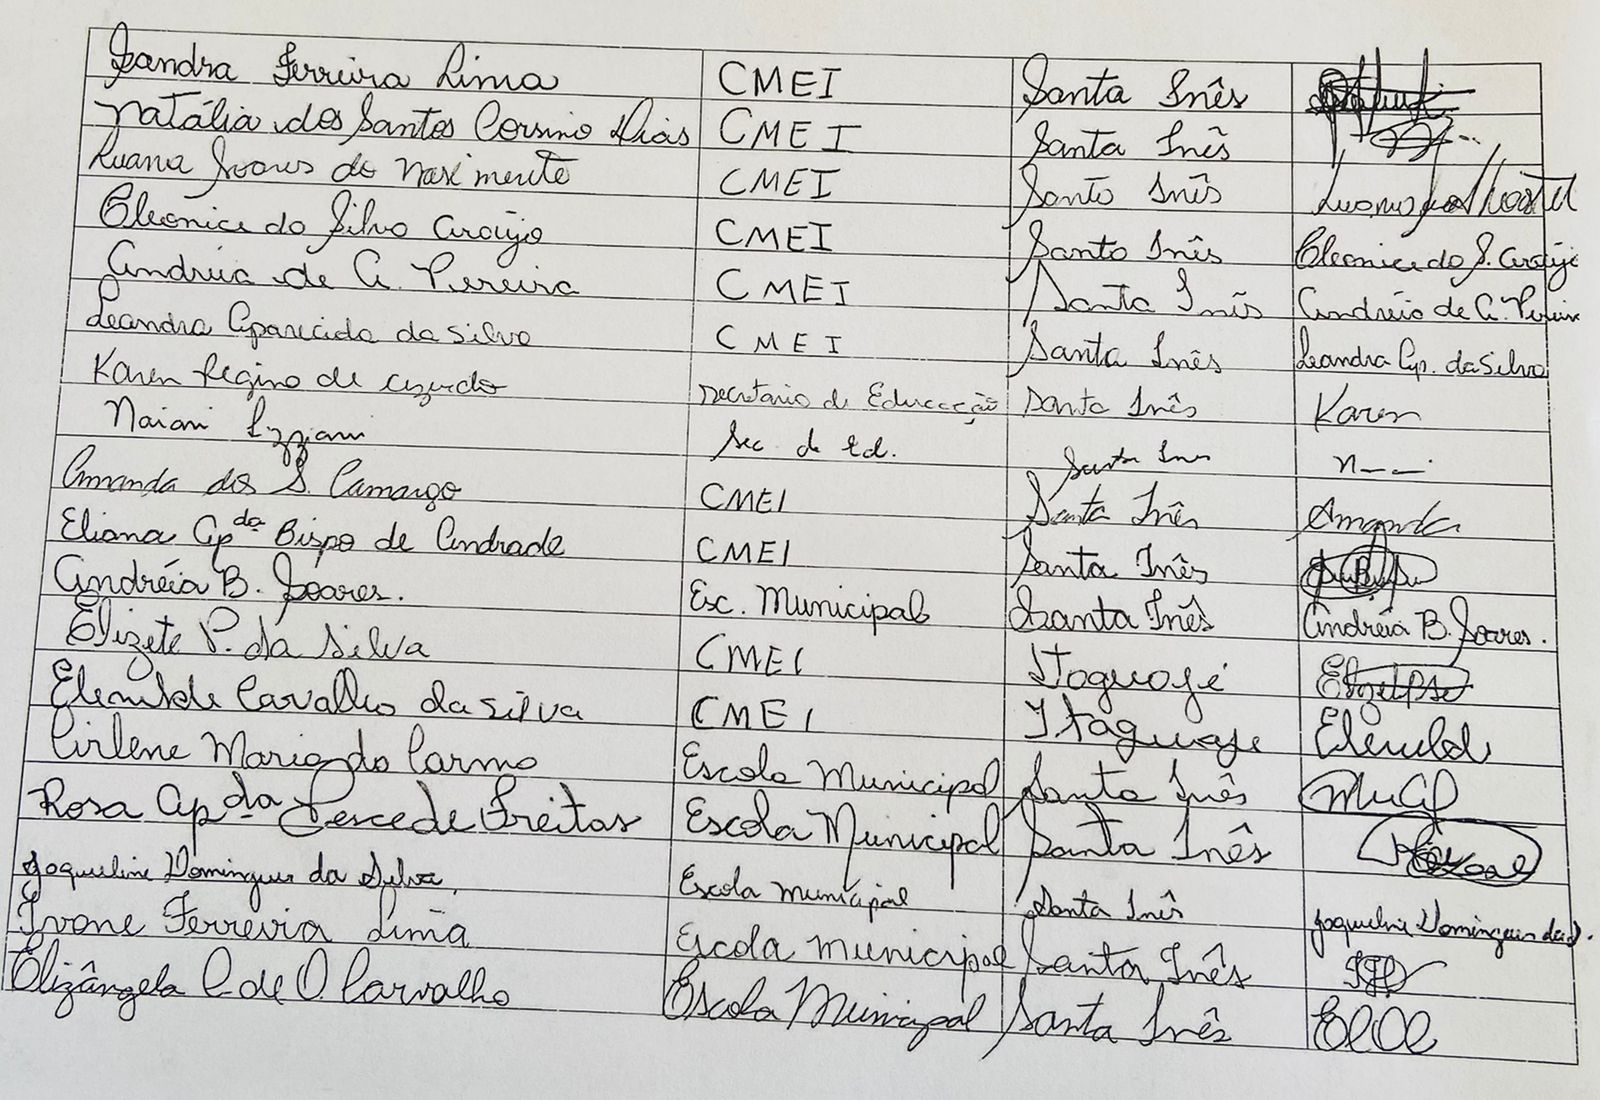 Sandra Ferreira Lima CMEI Santa Inês
Natália dos Santos Corsino Dias CMEI Santa Inês
Luana Soares do Nascimento CMEI Santo Inês
Cleonice da Silva Araújo CMEI Santo Inês Cleonice da S. Araújo
Andréia de A. Pereira CMEI Santa Inês Andréia de A. Pereira
Leandra Aparecida da Silva CMEI Santa Inês Leandra Ap. da Silva
Karen Regina de Secretário de Educação Santa Inês Karen
Naiani Sec. de Ed. Santa Ines
Amanda dos S. Camargo CMEI Santa Inês Amanda
Eliana Apda Bispo de Andrade CMEI Santa Inês
Andréia B. Soares. Esc. Municipal Santa Inês Andréia B. Soares.
Elizete P. da Silva CMEI Itaguajé
Elenilde Carvalho da Silva CMEI Itaguaje
Cirlene Maria do Carmo Escola Municipal Santa Inês
Rosa Apda Pesce de Freitas Escola Municipal Santa Inês
Jaqueline Domingues da Silva Escola Municipal Santa Inês Jaqueline Domingues da S.
Ivone Ferreira Lima Escola Municipal Santa Inês
Elizângela C. de O. Carvalho Escola Municipal Santa Inês